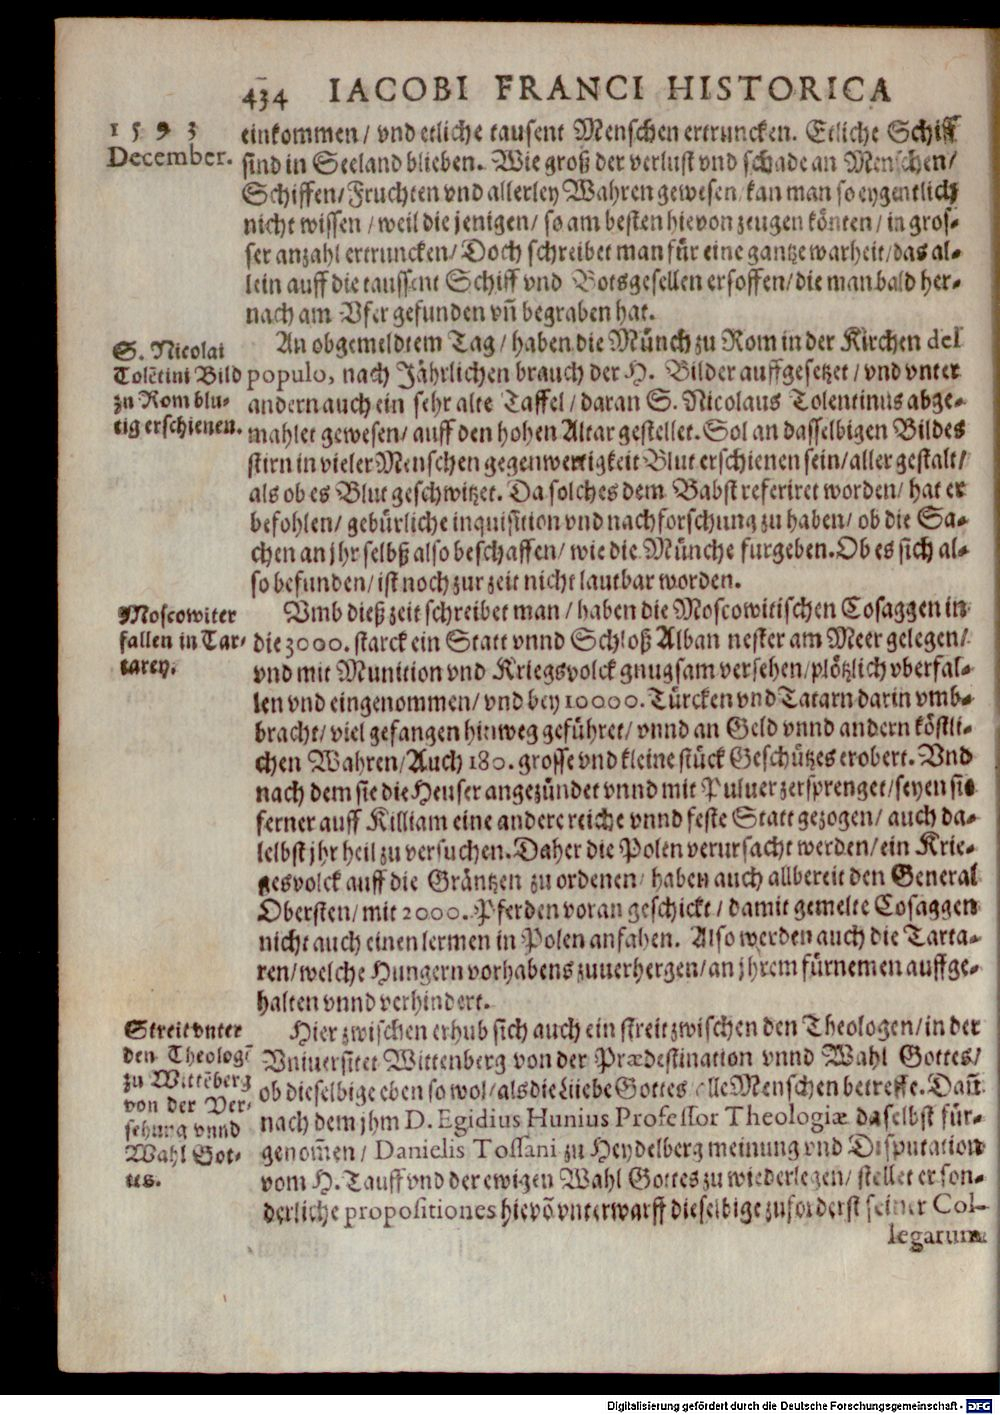 434 IACOBI FRANCI HISTORICA
1593
December.
einkommen/ vnd etliche tausent Menschen ertruncken. Etliche Schiff
sind in Seeland blieben. Wie groß der verlust vnd schade an Menschen/
Schiffen/ Fruchten vnd allerley Wahren gewesen/ kan man so eygentlich
nicht wissen / weil die jenigen/ so am besten hievon zeugen könten/ in gros-
ser anzahl ertruncken/ Doch schreibet man für eine gantze warheit/ das al-
lein auff die taussent Schiff vnd Botsgesellen ersoffen/ die man bald her-
nach am Vfer gefunden vñ begraben hat.
S. Nicolai
Tolẽtini Bild
zu Rom blu-
tig erschienen.
An obgemeldtem Tag/ haben die Münch zu Rom in der Kirchen del
populo, nach Jährlichen brauch der H. Bilder auffgesetzet/ vnd vnter
andern auch ein sehr alte Taffel/ daran S. Nicolaus Tolentinus abge-
mahlet gewesen/ auff den hohen Altar gestellet. Sol an dasselbigen Bildes
stirn in vieler Menschen gegenwertigkeit Blut erschienen sein/ aller gestalt/
als ob es Blut geschwitzet. Da solches dem Babst referiret worden/ hat er
befohlen/ gebürliche inquisition vnd nachforschung zu haben/ ob die Sa-
chen an jhr selbß also beschaffen/ wie die Münche furgeben. Ob es sich al-
so befunden/ ist noch zur zeit nicht lautbar worden.
Moscowiter
fallen in Tar-
tarey.
Vmb dieß zeit schreibet man/ haben die Moscowitischen Cosaggen in
die 3000. starck ein Statt vnnd Schloß Alban nester am Meer gelegen/
vnd mit Munition vnd Kriegsvolck gnugsam versehen/ plötzlich vberfal-
len vnd eingenommen/ vnd bey 10000. Türcken vnd Tatarn darin vmb-
bracht/ viel gefangen hinweg geführet/ vnnd an Geld vnnd andern köstli-
chen Wahren/ Auch 180. grosse vnd kleine stück Geschützes erobert. Vnd
nach dem sie die Heuser angezündet vnnd mit Puluer zersprenget/ seyen sie
ferner auff Killiam eine andere reiche vnnd feste Statt gezogen/ auch da-
selbst jhr heil zu versuchen. Daher die Polen verursacht werden/ ein Krie-
gesvolck auff die Gräntzen zu ordenen/ haben auch allbereit den General
Obersten/ mit 2000. Pferden voran geschickt/ damit gemelte Cosaggen
nicht auch einen lermen in Polen anfahen. Also werden auch die Tarta-
ren/ welche Hungern vorhabens zuuerhergen/ an jhrem fürnemen auffge-
halten vnnd verhindert.
Streit vnter
den Theologẽ
zu Wittẽberg
von der Ver-
sehung vnnd
Wahl Got-
tes.
Hier zwischen erhub sich auch ein streit zwischen den Theologen/ in der
Vniuersitet Wittenberg von der Prædestination vnnd Wahl Gottes/
ob dieselbige eben so wol/ als die Liebe Gottes alle Menschen betreffe. Dañ
nach dem jhm D. Egidius Hunius Professor Theologiæ daselbst für-
genom̃en/ Danielis Tossani zu Heydelberg meinung vnd Disputation
vom H. Tauff vnd der ewigen Wahl Gottes zu wiederlegen/ stellet er son-
derliche propositiones hievõ vnterwarff dieselbige zuforderst seiner Col-
legarum
Digitalisierung gefördert durch die Deutsche Forschungsgemeinschaft - DFG